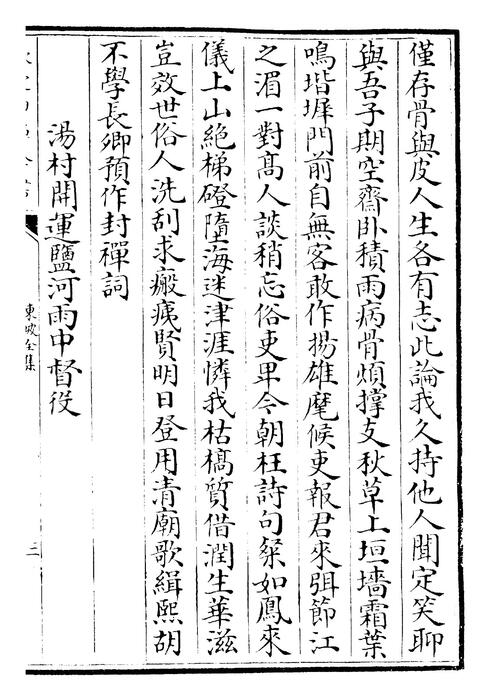 僅存骨與皮人生各有志此論我久持他人聞定笑聊
與吾子期空齋卧積雨病骨煩撐支秋草上垣墻霜葉
鳴堦墀門前自無客敢作揚雄麾候吏報君來弭節江
之湄一對髙人談稍忘俗吏卑今朝枉詩句粲如鳳來
儀上山絶梯磴墮海迷津涯憐我枯槁質借潤生華滋
豈效世俗人洗刮求瘢痍賢明日登用清廟歌緝熙胡
不學長卿預作封禪詞
湯村開運鹽河雨中督役
東坡全集
三